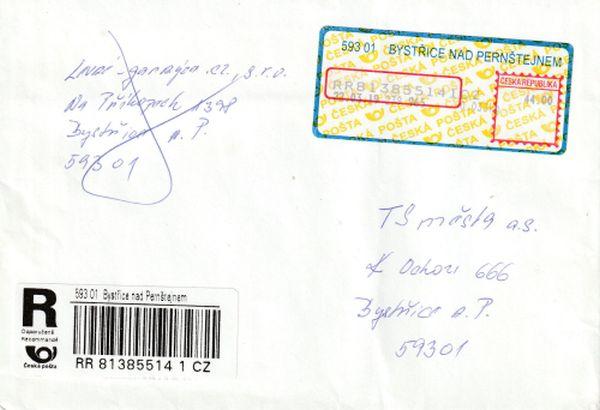 s.r.o.
Na Příkopech 1378
Bystřice n. P.
593 01
593 01 BYSTŘICE NAD PERNŠTEJNEM
RR813855141CZ
ČESKÁ REPUBLIKA
44,00
ČESKÁ POŠTA
TS města a.s.
K Ochozi 666
Bystřice n. P.
59301
R
Doporučeně
Recommandé
Česká pošta
593 01 Bystřice nad Pernštejnem
RR 81385514 1 CZ